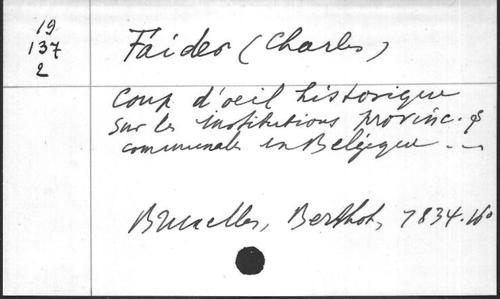 19
137
2
Faider (Charles)
Coup d'oeil historique
sur les institutions provinc. &
communales en Belgique ...
Bruxelles, Berthot, 1834. 16°